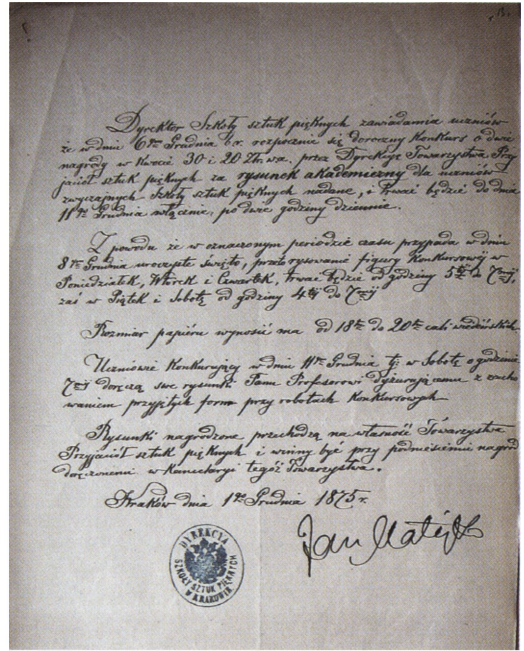 Dyrektor Szkoły sztuk pięknych zawiadamia uczniów
że w dniu 6tym Grudnia b.r. rozpocznie się doroczny Konkurs o dwie
nagrody w kwocie 30 i 20 Złr. wa. przez Dyrekcyę Towarzystwa Przy
jaciół sztuk pięknych za rysunek akademiczny dla uczniów
zwyczajnych Szkoły sztuk pięknych nadane, i trwać będzie do dnia
11go Grudnia włącznie, po dwie godziny dziennie.
Z powodu że w oznaczonym periodzie czasu przypada w dniu
8ym Grudnia uroczyste święto, przeto rysowanie figury Konkursowéj w
Poniedziałek, Wtorek i Czwartek, trwać będzie od godziny 5téj do 7méj,
zaś w Piątek i Sobotę od godziny 4téj do 7méj
Rozmiar papieru wynosić ma od 18tu do 20tu cali wiedeńskich.
Uczniowie Konkurujący w dniu 11ym Grudnia tj. w Sobotę o godzinie
7méj doręczą swe rysunki Panu Profesorowi dyżurującemu z zacho
waniem przyjętych form przy robotach Konkursowych
Rysunki nagrodzone przechodzą na własność Towarzystwa
Przyjaciół sztuk pięknych i winny być przy podniesieniu nagród
doręczonemi w Kancelaryi tegóż Towarzystwa.
Kraków dnia 1go Grudnia 1875 r.
Jan Matejko
DYREKCIA
SZKOŁY SZTUK PIĘKNYCH
W KRAKOWIE